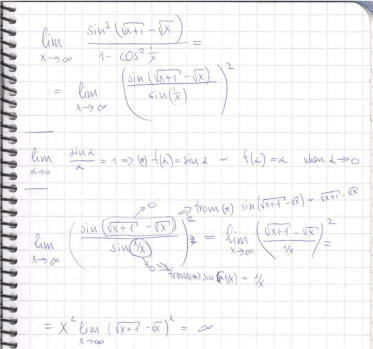 lim x→∞ sin²(√x+1 - √x) / 1 - cos² 1/x =
= lim x→∞ (sin(√x+1 - √x) / sin(1/x))²
lim α→0 sin α / α = 1 ⇒ (*) f(α) = sin α ~ f(α) = α when α→0
0 ⇒ from (*) sin(√x+1 - √x) ~ √x+1 - √x
lim x→∞ (sin(√x+1 - √x) / sin(1/x))² = lim x→∞ (√x+1 - √x / 1/x)² =
0 from (*) sin(1/x) ~ 1/x
= x² lim x→∞ (√x+1 - √x)² = ∞